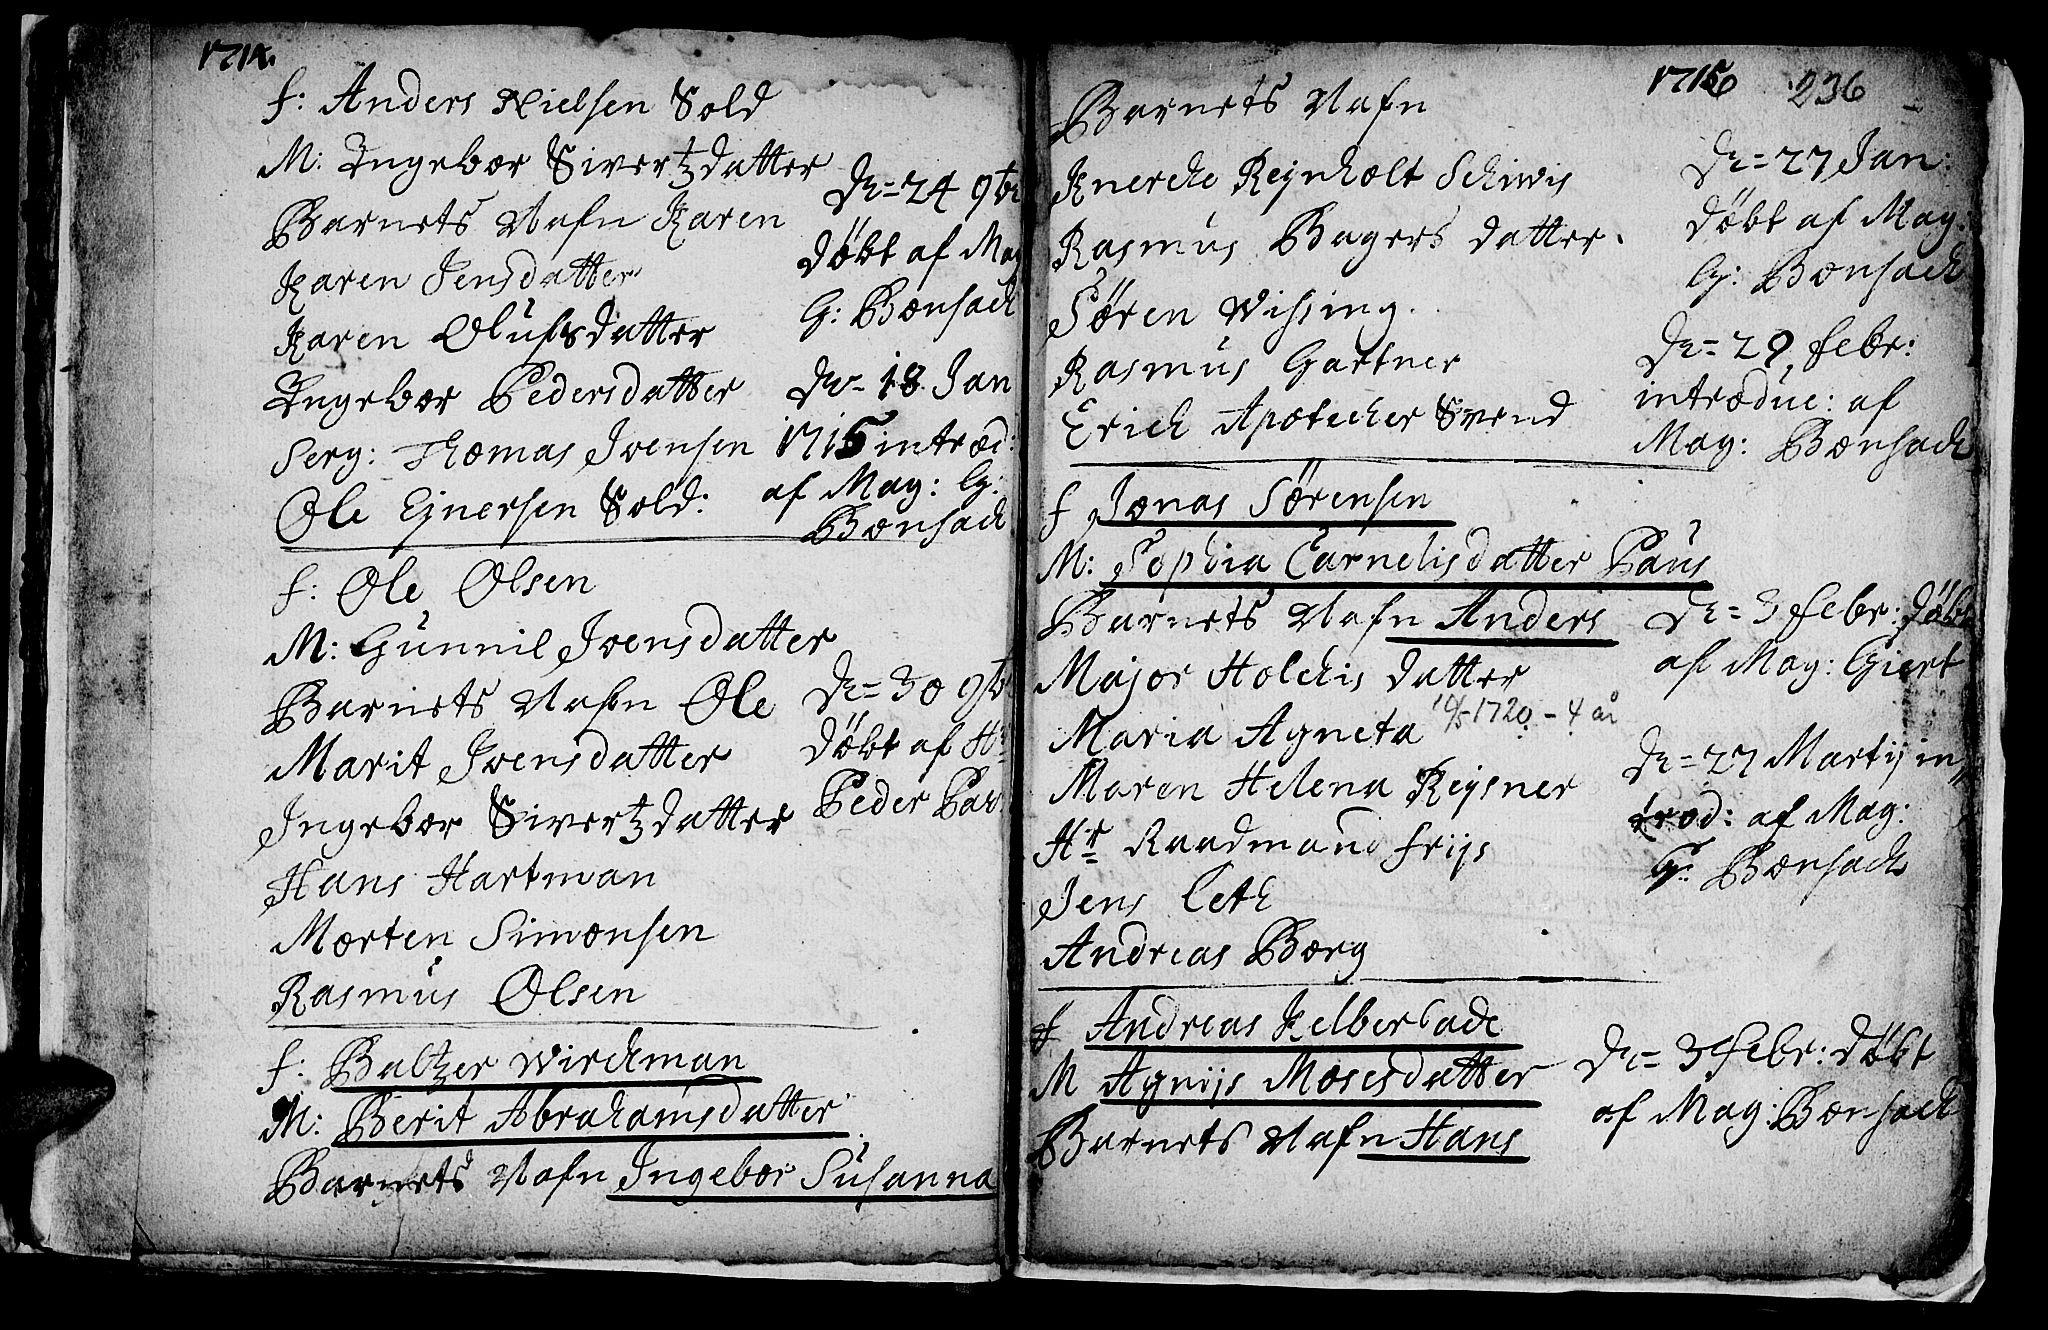 1714.
f: Anders Nielsen Sold
M: Ingebor Sivertzdatter
Barnets Nafn Karen
Karen Jensdatter
Karen Olufsdatter
Ingebor Pedersdatter
Serg: Thomas Ivensen
Ole Ejnersen Sold:
D= 24 9br
døbt af Mag
G: Bonsach
D= 18 Jan
1715 introd:
af Mag: G:
Bonsach
f: Ole Olsen
M: Gunnil Ivensdatter
Barnets Nafn Ole
Marit Ivensdatter
Ingebor Sivertzdatter
Hans Hartman
Morten Simonsen
Rasmus Olsen
D= 30 9br
døbt af Hr
Peder
f: Baltzer Wirckman
M: Berit Abrahamsdatter
Barnets Nafn Ingebor Susanna
1715 236
Barnets Nafn
Reynholt
Rasmus Bagers datter.
Søren Wissing.
Rasmus Gartner
Erich Apotecher Svend
D= 27 Jan:
døbt af Mag:
G: Bonsach
D= 29 febr:
introduc: af
Mag: Bonsach
f Jonas Sørensen
M: Sophia Cornelisdatter Paus
Barnets Nafn Anders
Major Holckis datter
Maria Agneta 10/5-1720 - 4 år
Maren Helena Reysner
Hr Raadmand Friis
Jens Leth
Andreas Borg
D= 3 febr: døbt
af Mag: Giert
D= 27 Martij in
trod: af Mag:
G. Bonsach
f Andreas Kelberlade
M Agnijs Mosesdatter
Barnets Nafn Hans
D= 3 febr: døbt
af Mag: Bonsach